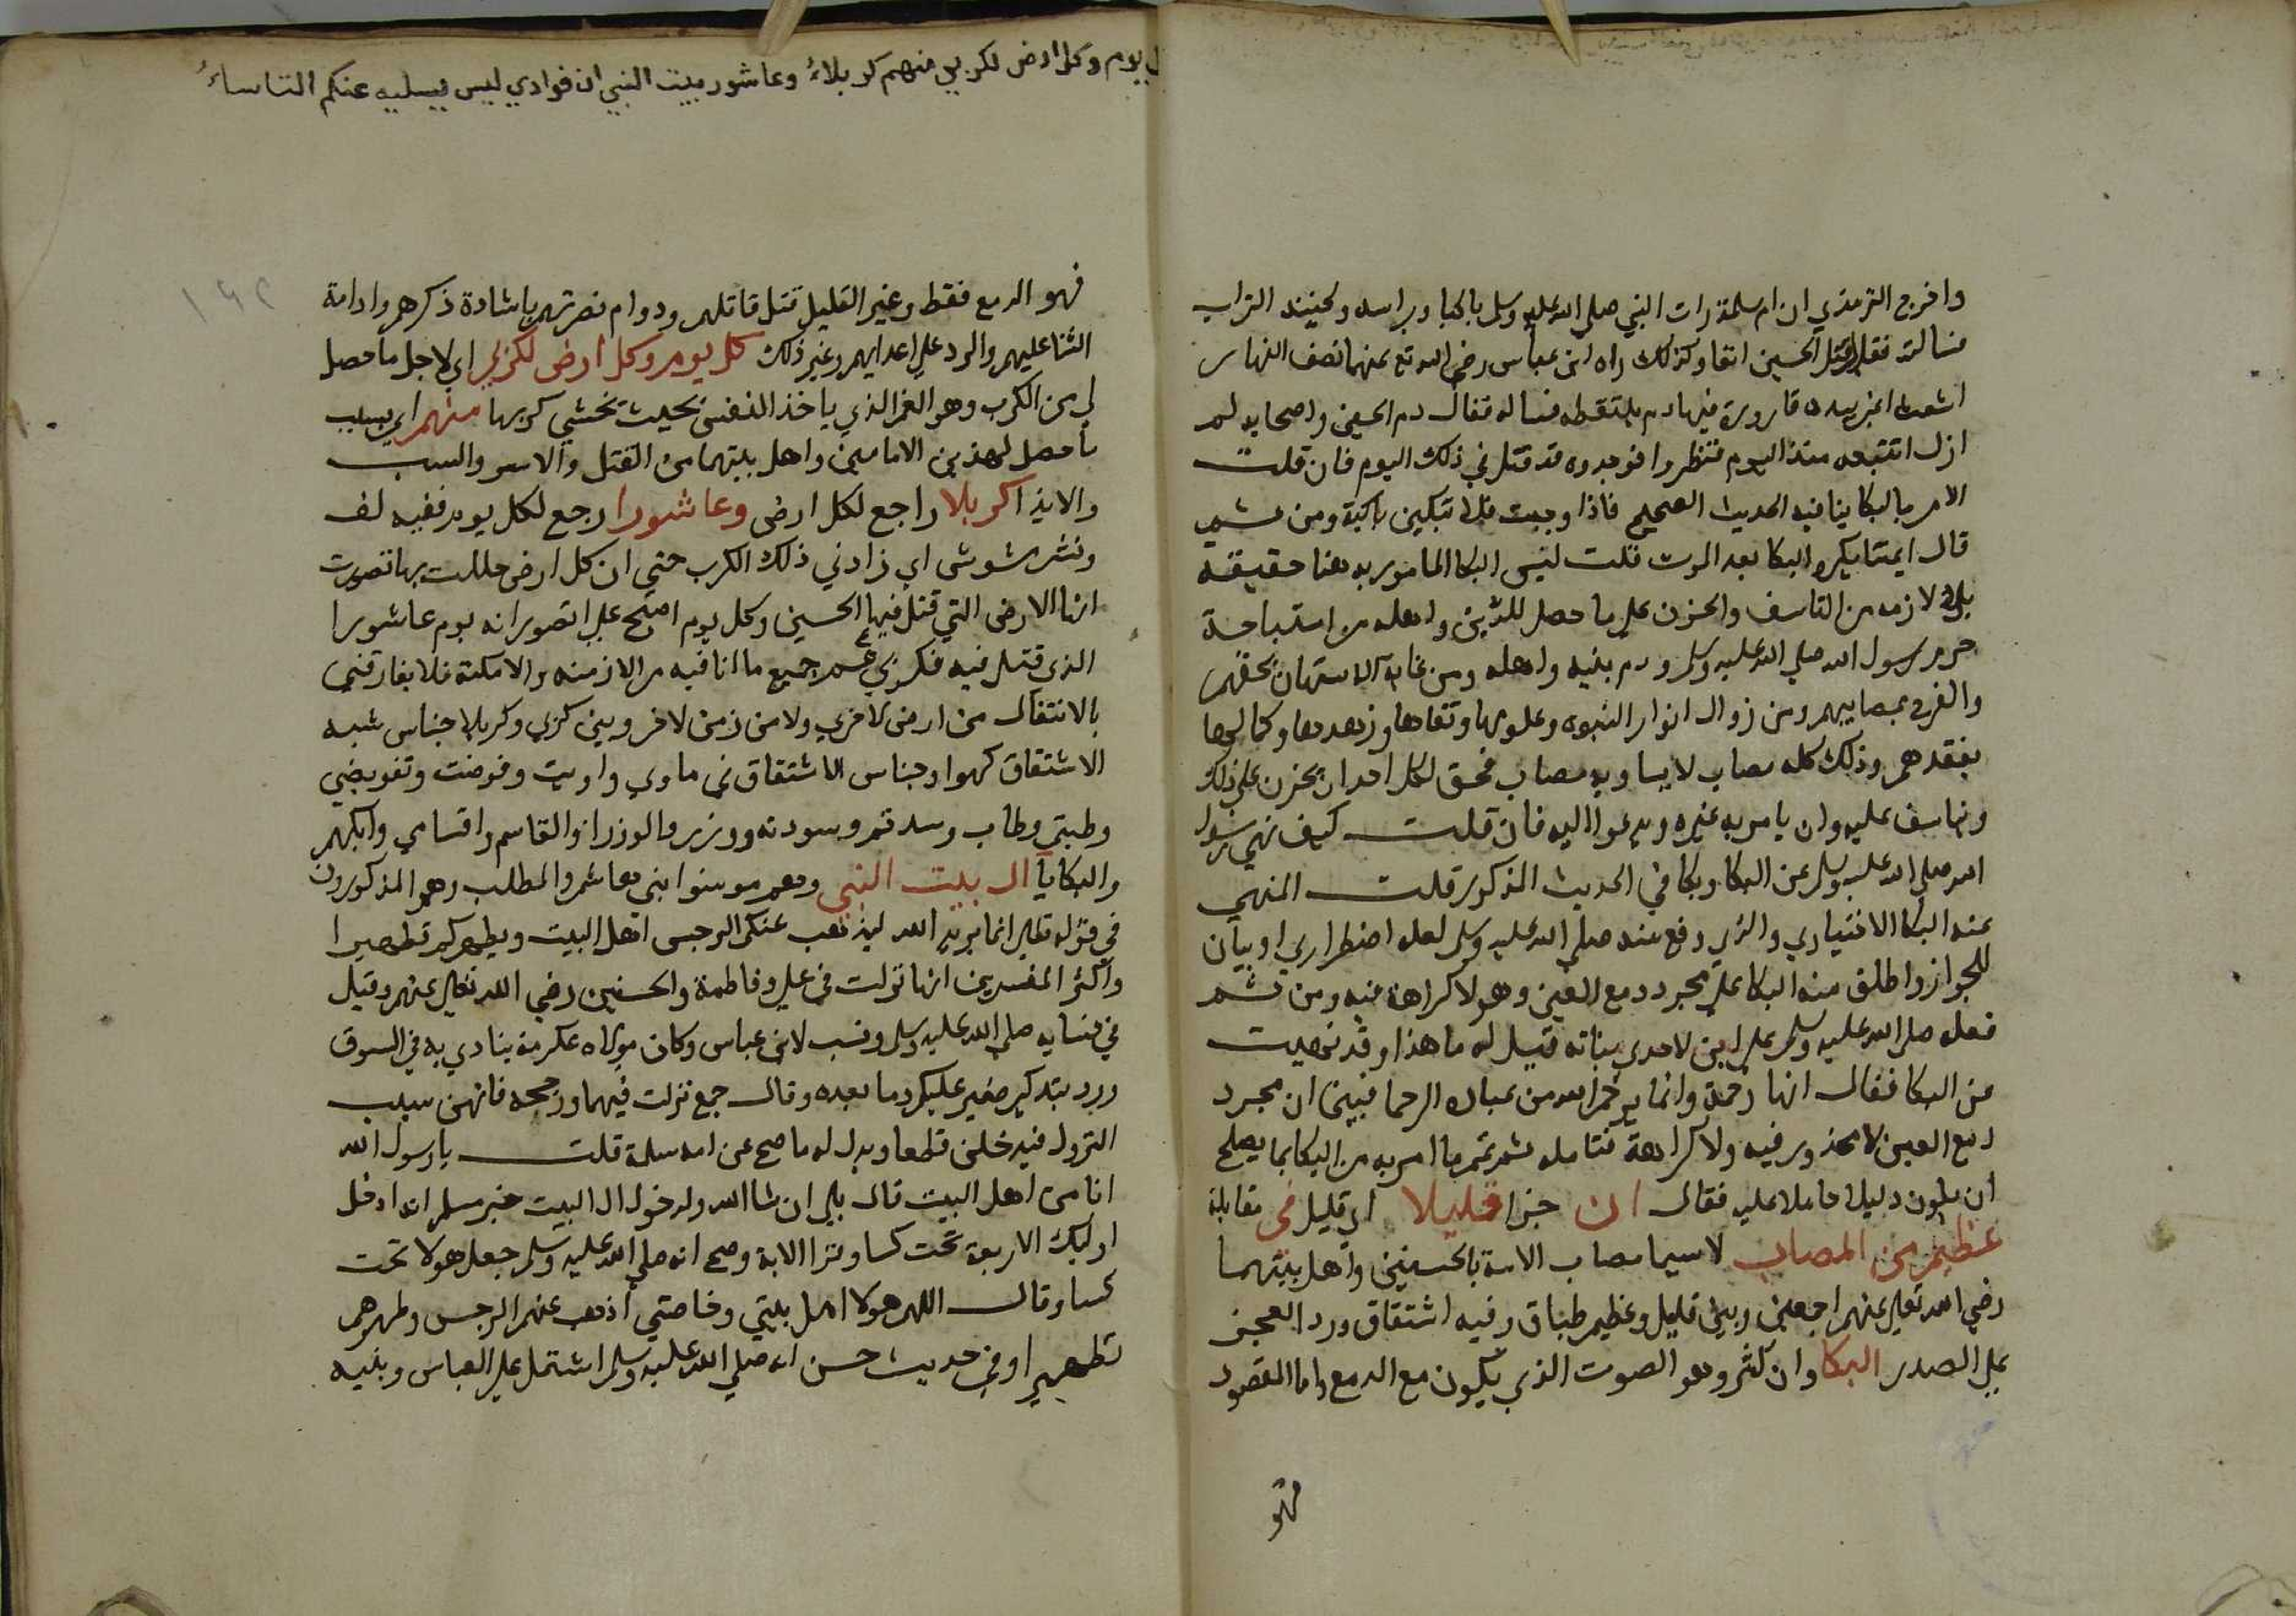 واخرج الترمذي ان ام سلمة رات النبي صلي الله عليه وسلم باكيا وبراسه ولحيته التراب
فسالته فقال قتل الحسين انفا وكذلك راه ابن عباس رضي الله تع عنهما نصف النهار
اشعث اغبر بيده قارورة فيها دم يلتقطه فساله فقال دم الحسين واصحابه لم
ازل اتتبعه منذ اليوم فنظروا فوجدوه قد قتل في ذلك اليوم فان قلت
الامر بالبكا ينافيه الحديث الصحيح فاذا وجبت فلا تبكين باكية ومن ثم
قال ايمتنا يكره البكا بعد الموت قلت ليس البكا المامور به هنا حقيقة
بل لازمه من التاسف والحزن علي ما حصل للدين واهله من استباحة
حرم رسول الله صلي الله عليه وسلم ودم بنيه واهله ومن غاية الاستهان بحقهم
والفرح بمصايبهم ومن زوال انوار النبوه وعلومها وتقاها وزهدها وكمالها
بفقدهم وذلك كله مصاب لا يساويه مصاب فحق لكل احد ان يحزن علي ذلك
ويتاسف عليه وان يامر به غيره ويدعوا اليه فان قلت كيف نهي رسول
الله صلي الله عليه وسلم عن البكا وبكا في الحديث المذكور قلت المنهي
عنه البكا الاختياري والذي وقع منه صلي الله عليه وسلم لعله اضطراري او بيان
للجواز واطلق منه البكا علي مجرد دمع العين وهو لا كراهة فيه ومن ثم
فعله صلي الله عليه وسلم علي ابن لاحدي بناته فقيل له ما هذا وقد نهيت
عن البكا فقال انها رحمة وانما يرحم الله من عباده الرحما فبين ان مجرد
دمع العين لا محذور فيه ولا كراهة فتامله ثم تمم ما امر به من البكا بما يصلح
ان يكون دليلا حاملا عليه فقال ان جزا قليلا اي قليل في مقابلة
عظيم من المصاب لاسيما مصاب الامة بالحسنين واهل بيتهما
رضي الله تعالي عنهم اجمعين وبين قليل وعظيم طباق وفيه اشتقاق ورد العجز
علي الصدر البكا وان كثر وهو الصوت الذي يكون مع الدمع واما المقصود
فهو
ل يوم وكل ارض لكربي منهم كربلاءُ وعاشور بيت النبي ان فوادي ليس يسليه عنكم التاساءُ
فهو الدمع فقط وغير القليل قتل قاتلهم ودوام نصرتهم باشادة ذكرهم وادامة
الثنا عليهم والرد علي اعدايهم وغير ذلك كل يوم وكل ارض لكربي اي لاجل ما حصل
لي من الكرب وهو الغم الذي ياخذ النفس بحيث تخشي كربها منهم اي بسبب
ما حصل لهذين الامامين واهل بيتهما من القتل والاسر والسب
والايذا كربلا راجع لكل ارض وعاشورا رجع لكل يوم ففيه لف
ونشر مشوش اي زادني ذلك الكرب حتي ان كل ارض حللت بها تصورت
انها الارض التي قتل فيها الحسين وكل يوم اصبح علي اتصور انه يوم عاشورا
الذي قتل فيه فكربي عم جميع ما انا فيه من الازمنه والامكنة فلا يفارقني
بالانتقال من ارض لاخري ولا من زمن لاخر وبين كربي وكربلا جناس شبه
الاشتقاق كهوا وجناس الاشتقاق في ماوي واويت وفوضت وتفويضي
وطبتم وطاب وسدتم وسودته ووزير والوزرا والقاسم واقسامي وابكهم
والبكا يآ ال بيت النبي وهم مومنوا بني هاشم والمطلب وهم المذكورون
في قوله تعالي انما يريد الله ليذهب عنكم الرجس اهل البيت ويطهركم تطهيرا
واكثر المفسرين انها نزلت في علي وفاطمة والحسنين رضي الله تعالي عنهم وقيل
في نسايه صلي الله عليه وسلم ونسب لابن عباس وكان مولاه عكرمة ينادي به في السوق
ورد بتذكير ضمير عليكم وما بعده وقال جمع نزلت فيهما ورجحه فانهن سبب
النزول فيدخلن قطعا ويدل له ما صح عن ام سلمة قلت يا رسول الله
انا من اهل البيت قال بلي ان شا الله ولدخول ال البيت خبر مسلم انه ادخل
اوليك الاربعة تحت كسا وقرا الاية وصح انه صلي الله عليه وسلم جعل هولا تحت
كسا وقال اللهم هولا اهل بيتي وخاصتي اذهب عنهم الرجس وطهرهم
تطهيرا وفي حديث حسن انه صلي الله عليه وسلم اشتمل علي العباس وبنيه
١٤٢